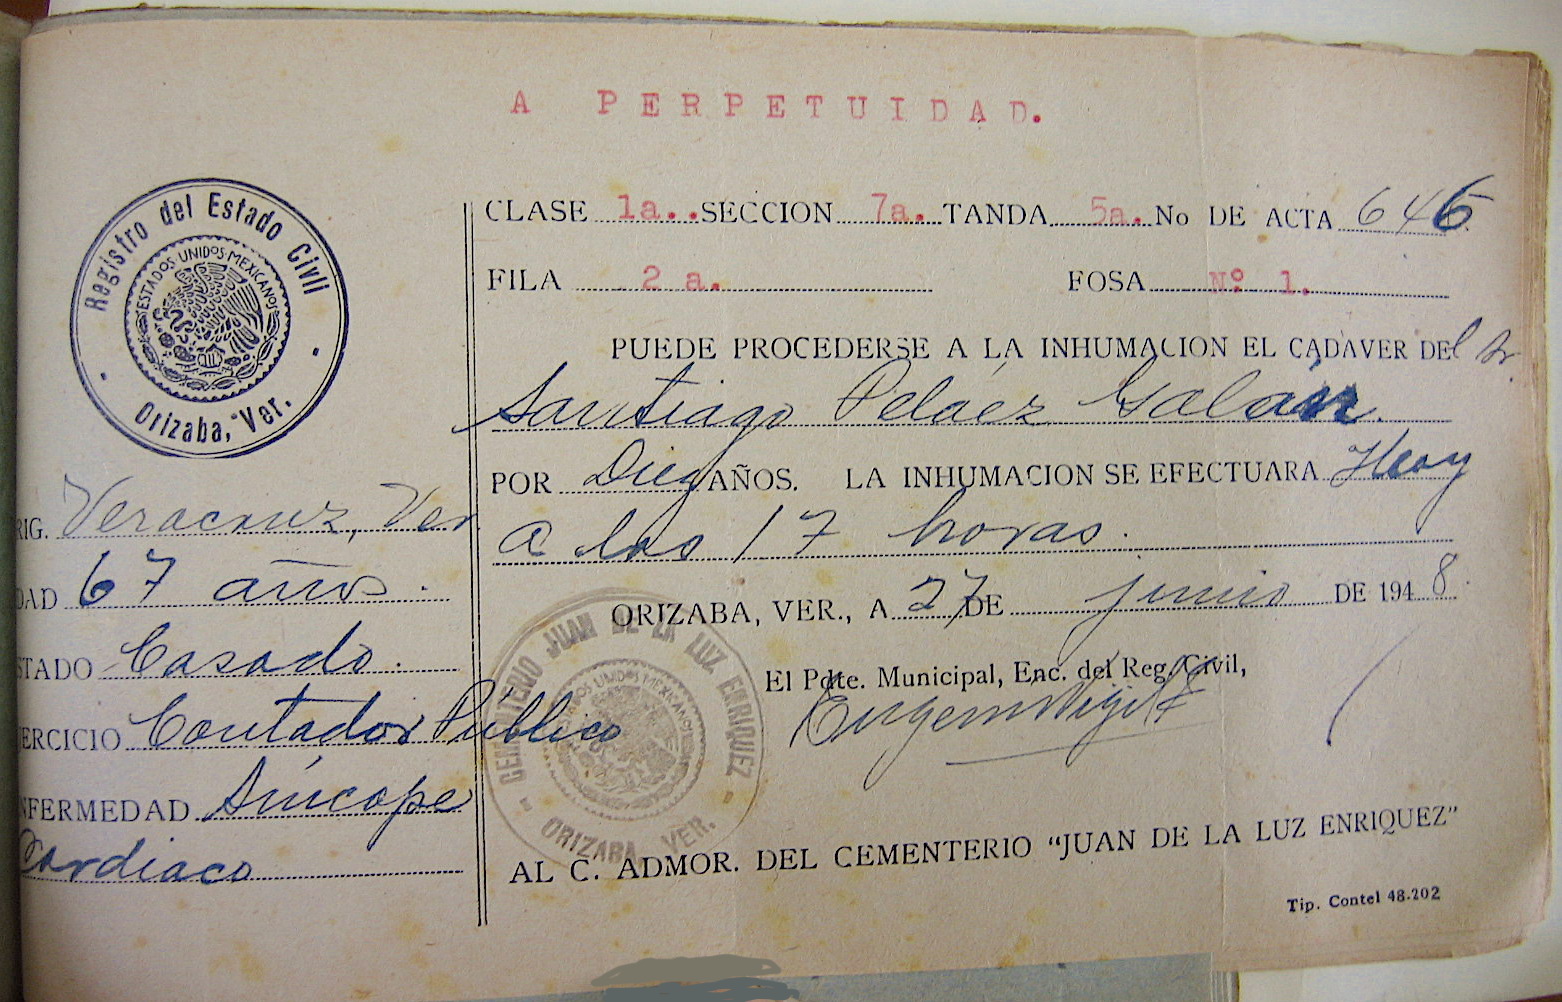 A PERPETUIDAD.
Registro del Estado Civil
ESTADOS UNIDOS MEXICANOS
Orizaba, Ver.
CLASE 1a. SECCION 7a. TANDA 5a. No DE ACTA 646
FILA 2 a. FOSA Nº 1.
PUEDE PROCEDERSE A LA INHUMACION EL CADAVER DEl Sr.
Santiago Peláez Galán.
POR Diez AÑOS. LA INHUMACION SE EFECTUARA Hoy
a las 17 horas.
ORIZABA, VER., A 27 DE junio DE 1948.
El Pdte. Municipal, Enc. del Reg. Civil,
RIG. Veracruz, Ver.
DAD 67 años.
STADO Casado.
ERCICIO Contador Público
NFERMEDAD Síncope
Cardiaco
CEMENTERIO JUAN DE LA LUZ ENRIQUEZ
ESTADOS UNIDOS MEXICANOS
ORIZABA, VER.
AL C. ADMOR. DEL CEMENTERIO “JUAN DE LA LUZ ENRIQUEZ”
Tip. Contel 48-202